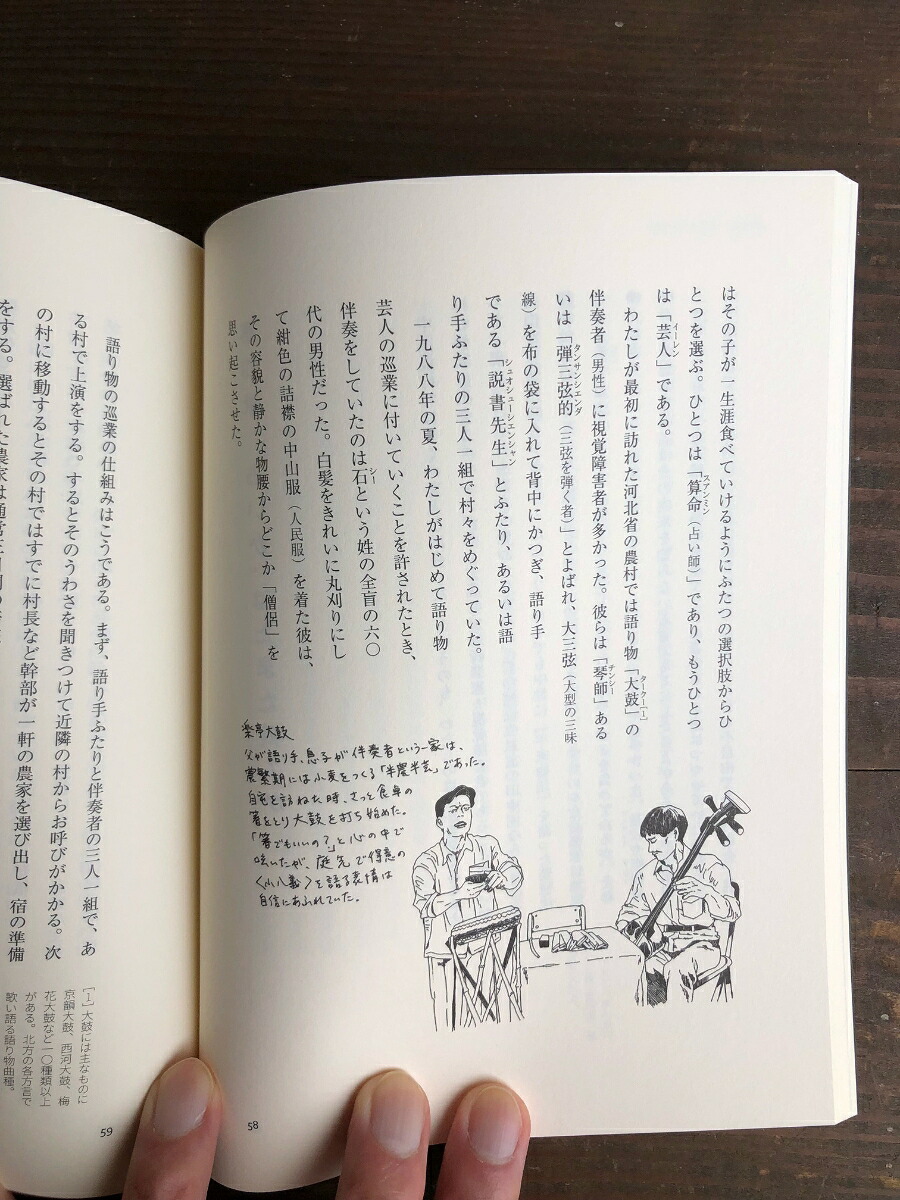 はその子が一生涯食べていけるようにふたつの選択肢からひ
とつを選ぶ。ひとつは「算命（占い師）」であり、もうひとつ
スアンミン
は「芸人」である。
イーレン
わたしが最初に訪れた河北省の農村では語り物「大鼓」の
ターク―［1］
伴奏者（男性）に視覚障害者が多かった。彼らは「琴師」ある
チンシー
いは「弾三弦的（三弦を弾く者）」とよばれ、大三弦（大型の三味
タンサンシェンダ
線）を布の袋に入れて背中にかつぎ、語り手
である「説書先生」とふたり、あるいは語
シュオシューシエンシャン
り手ふたりの三人一組で村々をめぐっていた。
一九八八年の夏、わたしがはじめて語り物
芸人の巡業に付いていくことを許されたとき、
伴奏をしていたのは石という姓の全盲の六〇
シー
代の男性だった。白髪をきれいに丸刈りにし
て紺色の詰襟の中山服（人民服）を着た彼は、
その容貌と静かな物腰からどこか「僧侶」を
思い起こさせた。
楽亭大鼓
父が語り手、息子が伴奏者という一家は、
農繁期には小麦をつくる「半農半芸」であった。
自宅を訪ねた時、さっと食卓の
箸をとり大鼓を打ち始めた。
「箸でもいいの？」と心の中で
呟いたが、庭先で得意の
〈小八義〉を語る表情は
自信にあふれていた。
58
語り物の巡業の仕組みはこうである。まず、語り手ふたりと伴奏者の三人一組で、あ
る村で上演をする。するとそのうわさを聞きつけて近隣の村からお呼びがかかる。次
の村に移動するとその村ではすでに村長など幹部が一軒の農家を選び出し、宿の準備
をする。選ばれた農家は通常
［1］大鼓には主なものに
京韻大鼓、西河大鼓、梅
花大鼓など一〇種類以上
がある。北方の各方言で
歌い語る語り物曲種。
59